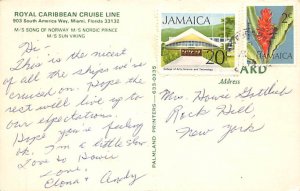 ROYAL CARIBBEAN CRUISE LINE
903 South America Way, Miami, Florida 33132
M·S SONG OF NORWAY M·S NORDIC PRINCE
M·S SUN VIKING
Hi!
This is the nicest
of all the ships we've
cruised on. Hope the
rest will live up to
our expectations.
Hope you're feeling
ok. I'm a little
Love to Howie
too.
Elona & Andy
PALMLAND PRINTERS
JAMAICA
20c
College of Arts Science and Technology
JAMAICA
2c
Address
CARD
Mrs. Howie Gottlieb
Rock Hill
New York